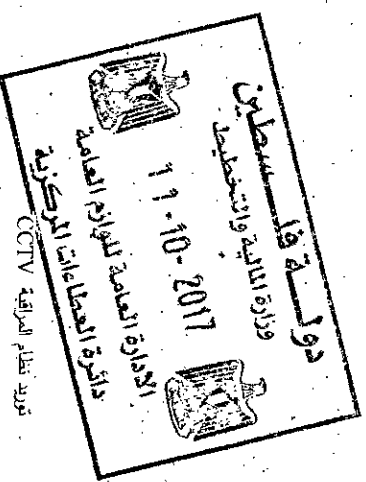 دولة فلسطين
وزارة المالية والتخطيط
11-10-2017
الادارة العامة للوازم العامة
دائرة العطاءات المركزية
توريد نظام المراقبة CCTV